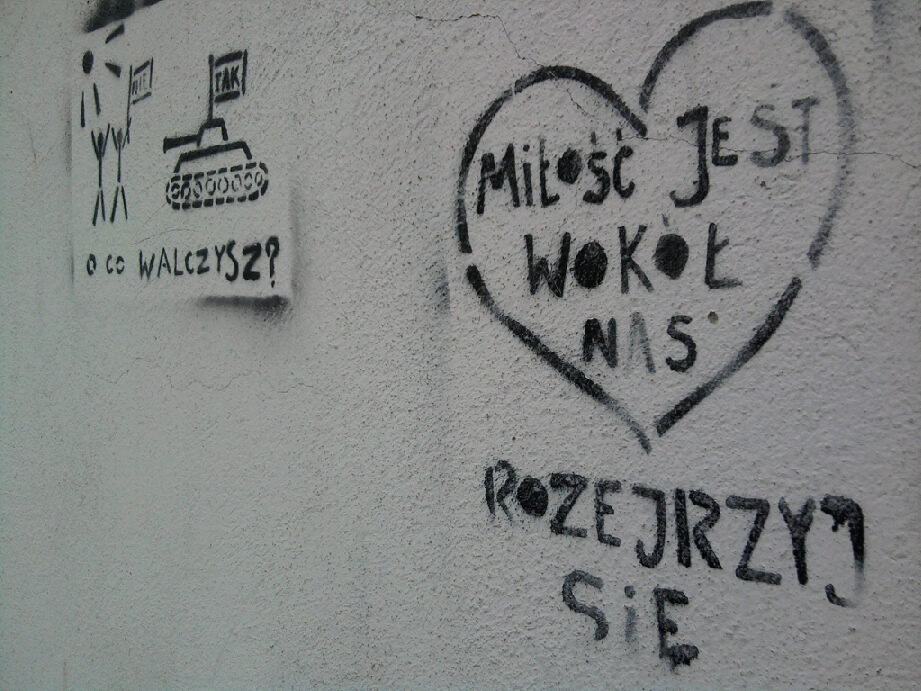 NIE
TAK
O CO WALCZYSZ?
MiŁOŚĆ JEST
WOKÓŁ
NAS
ROZEJRZYJ
SiĘ